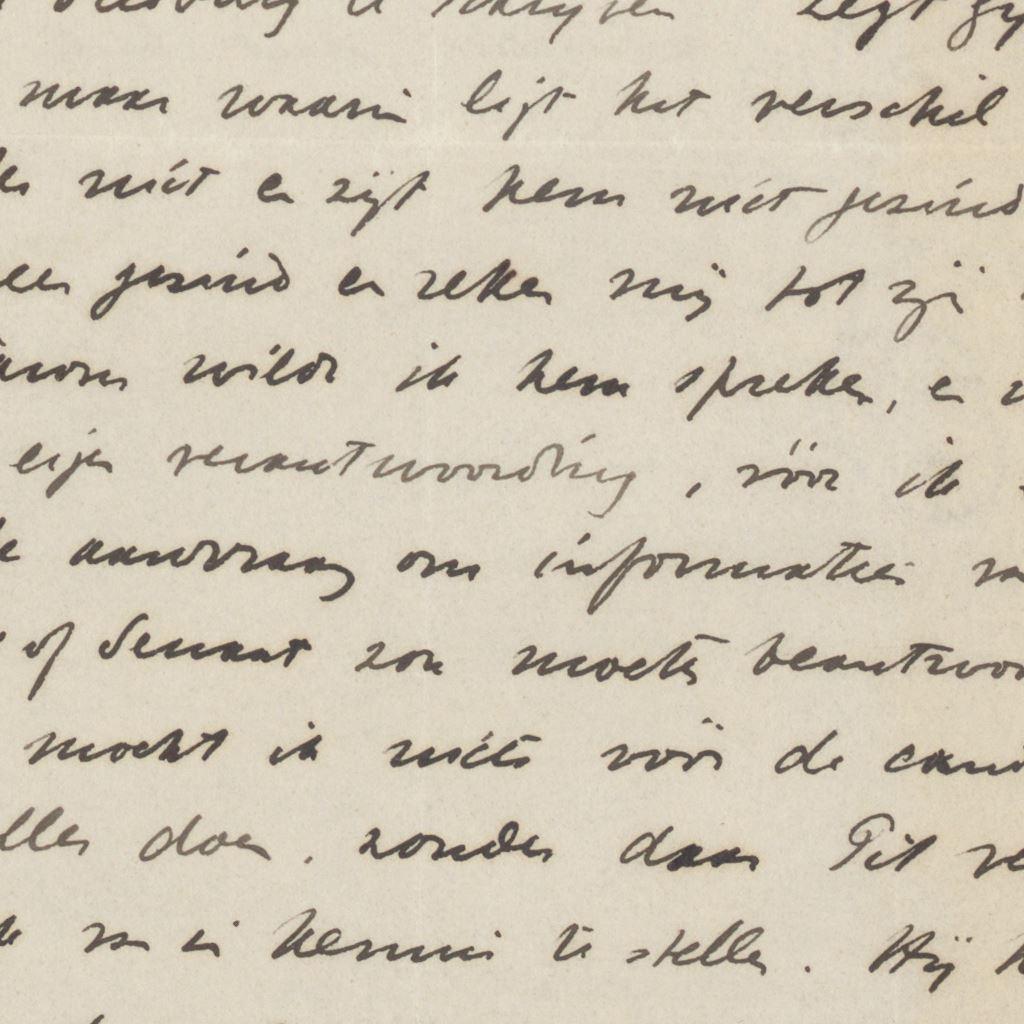 te schrijven zegt gij
maar waarin ligt het verschil
niet en zijt hem niet gezind
gezind en zeker mij tot zijn
wilde ik hem spreken, en
eigen verantwoording, vóór ik
aanvraag om informatie
of Servant zou moeten beantwoor
mocht ik niets vóór de cand
doen. zonder daar Pit
in kennis te stellen. Hij